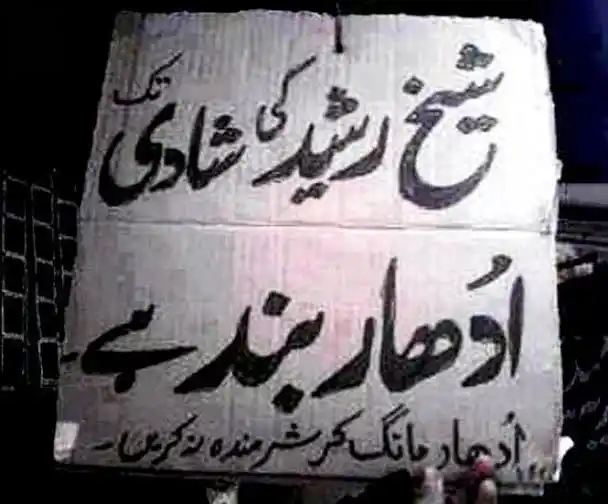 شیخ رشید کی شادی تک
اُدھار بند ہے۔
اُدھار مانگ کر شرمندہ نہ کریں۔